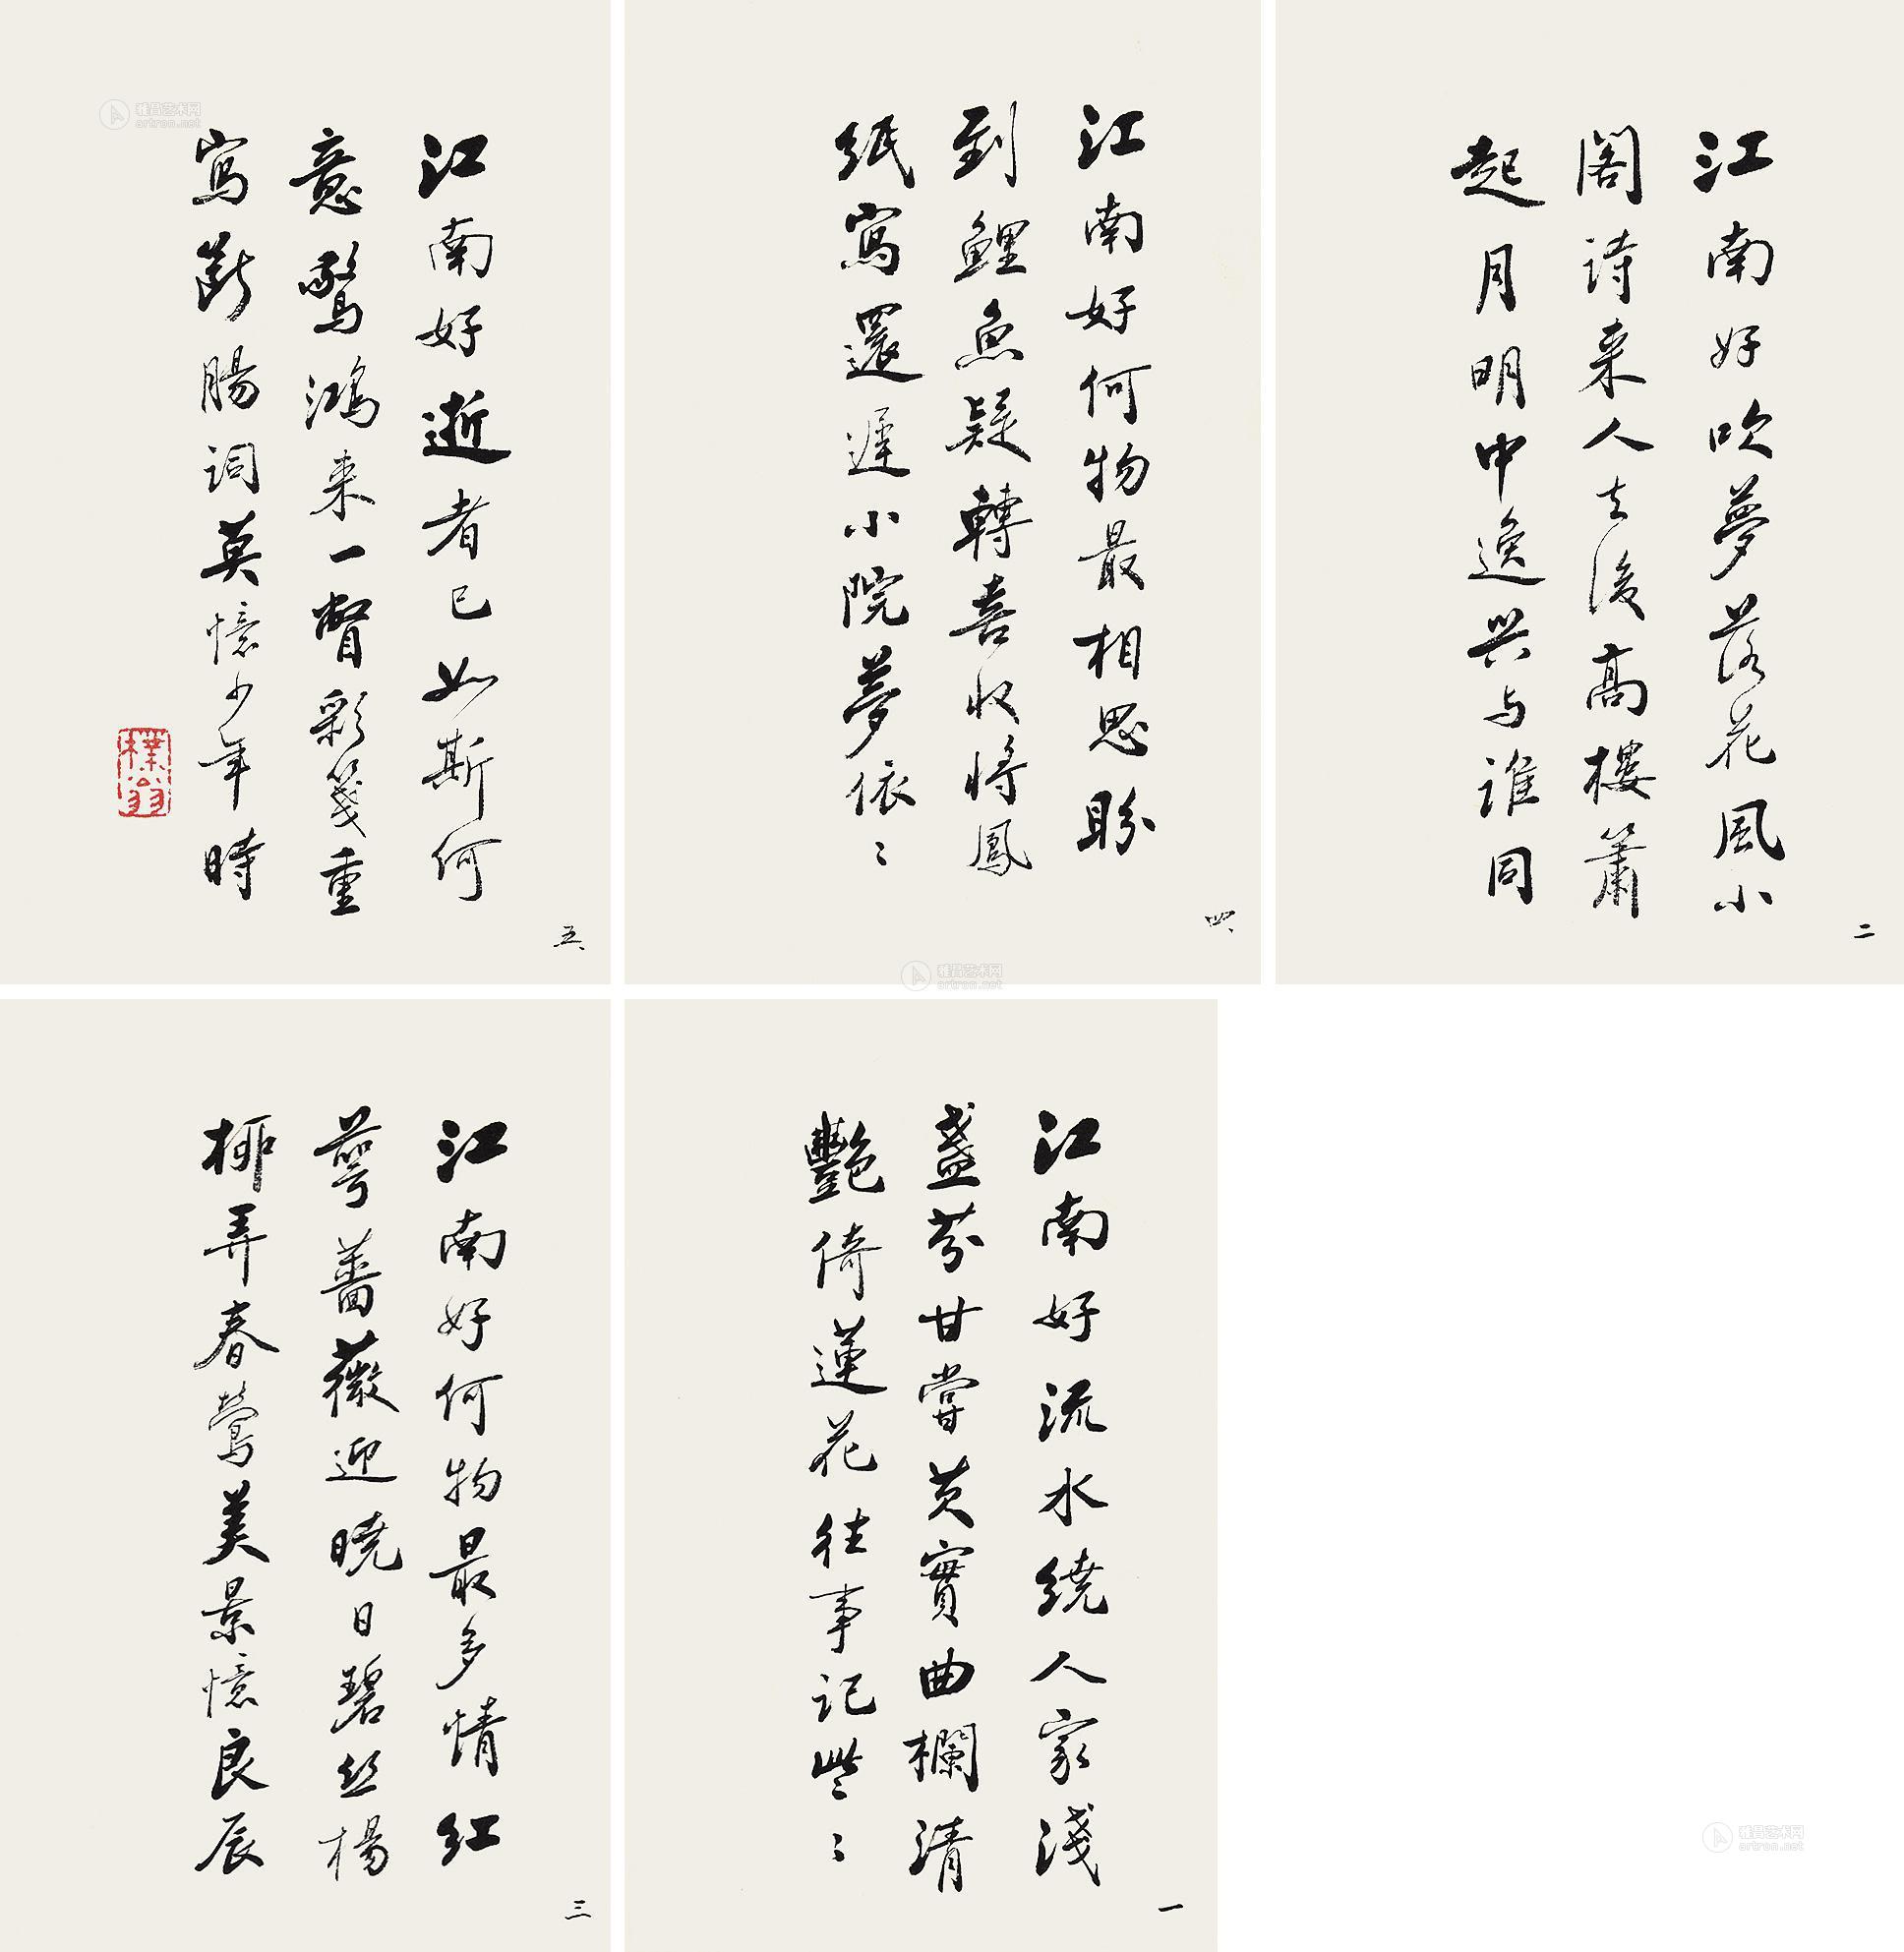 江南好流水繞人家淺
盞芬甘嘗芡實曲欄清
艷倚蓮花往事記些〻
一
江南好吹夢落花風小
閣詩来人去後高樓簫
起月明中逸興与誰同
二
江南好何物最多情紅
萼薔薇迎曉日碧丝楊
柳弄春鶯美景憶良辰
三
江南好何物最相思盼
到鯉魚疑轉喜收將鳳
紙寫還遲小院夢依〻
四、
江南好逝者已如斯何
意驚鴻来一瞥彩箋重
寫斷腸詞莫憶少年時
五、
樸翁
雅昌艺术网
artron.net
雅昌艺术网
artron.net
雅昌艺术网
artron.net